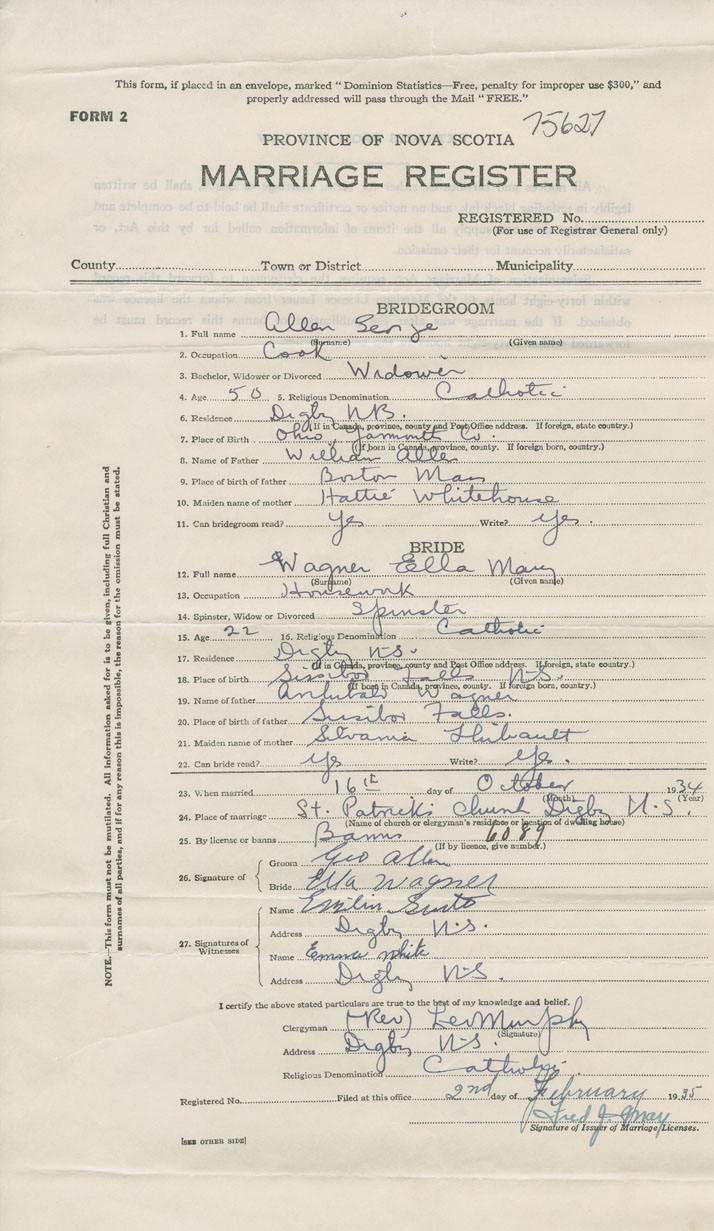 This form, if placed in an envelope, marked "Dominion Statistics—Free, penalty for improper use $300," and
properly addressed will pass through the Mail "FREE."
FORM 2
75627
PROVINCE OF NOVA SCOTIA
MARRIAGE REGISTER
REGISTERED No.
(For use of Registrar General only)
County Town or District Municipality
BRIDEGROOM
1. Full name Allen George
(Surname) (Given name)
2. Occupation Cook
3. Bachelor, Widower or Divorced Widower
4. Age 50 5. Religious Denomination Catholic
6. Residence Digby NB.
(If in Canada, province, county and Post Office address. If foreign, state country.)
7. Place of Birth Ohio, Yarmouth Co.
(If born in Canada, province, county. If foreign born, country.)
8. Name of Father William Allen
9. Place of birth of father Boston Mass
10. Maiden name of mother Hattie Whitehouse
11. Can bridegroom read? Yes Write? Yes.
BRIDE
12. Full name Wagner Ella Mary
(Surname) (Given name)
13. Occupation Housework
14. Spinster, Widow or Divorced Spinster
15. Age 22 16. Religious Denomination Catholic
17. Residence Digby N.S.
(If in Canada, province, county and Post Office address. If foreign, state country.)
18. Place of birth Sissibor Falls N.S.
(If born in Canada, province, county. If foreign born, country.)
19. Name of father Wagner
20. Place of birth of father Falls.
21. Maiden name of mother Silvania Thibault
22. Can bride read? Yes Write? Yes.
23. When married 16th day of October 1934
(Month) (Year)
24. Place of marriage St. Patrick's Church Digby N.S.
(Name of church or clergyman's residence or location of dwelling house)
25. By license or banns Banns 6089
(If by licence, give number.)
26. Signature of
Groom Geo Allen
Bride Ella Wagner
27. Signatures of Witnesses
Name
Address Digby N.S.
Name Emma White
Address Digby N.S.
I certify the above stated particulars are true to the best of my knowledge and belief.
Clergyman (Rev) Leo Murphy
(Signature)
Address Digby N.S.
Religious Denomination Catholic
Registered No. Filed at this office 2nd day of February 1935
Fred J. May
Signature of Issuer of Marriage Licenses.
[SEE OTHER SIDE]
NOTE.—This form must not be mutilated. All information asked for is to be given, including full Christian and
surnames of all parties, and if for any reason this is impossible, the reason for the omission must be stated.